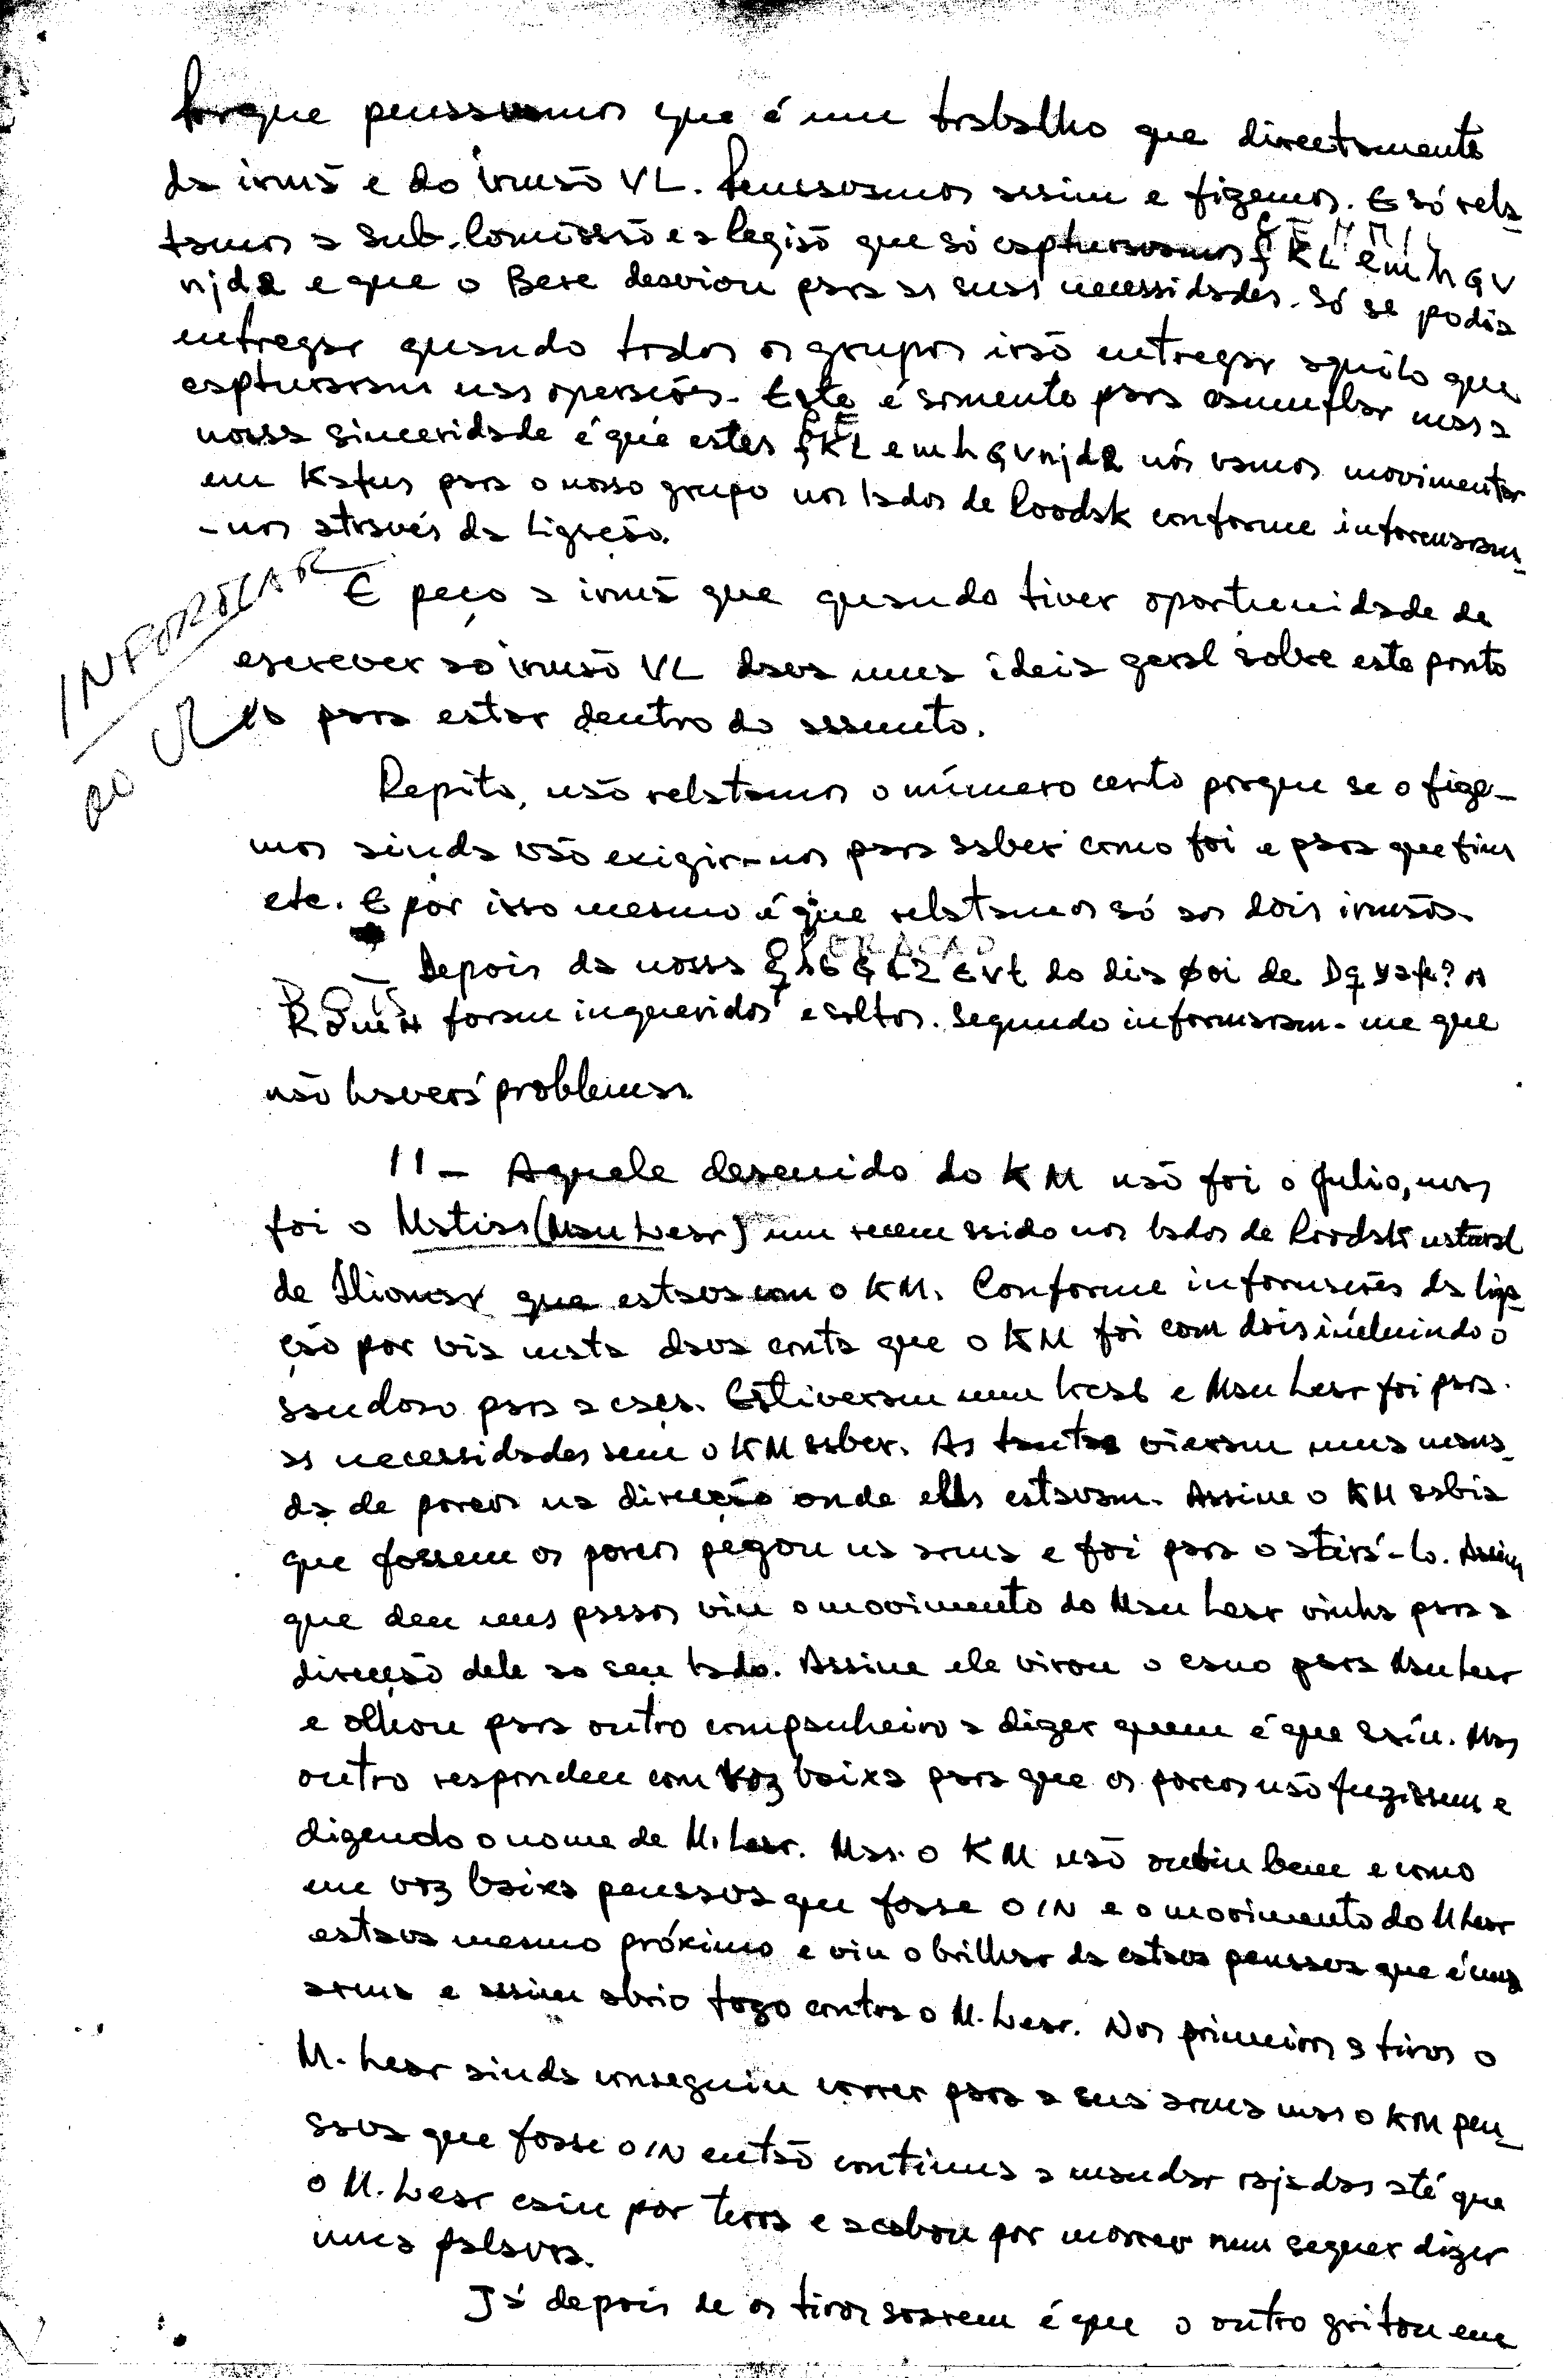 Porque pensavamos que é um trabalho que directamente
da irmã e do irmão VL. Pensavamos assim e fizemos. E só rela_
tamos a Sub-Comissão e a Região que só capturavamos KL emhGV
njd2 e que o Bere desviou para as suas necessidades. Só se podia
entregar quando todos os grupos irão entregar aquilo que
capturaram nas operações. Este é somente para camuflar mas a
nossa sinceridade é que estes fKL emhGVnjd2 nós vamos movimentar
em Katus para o nosso grupo nos lados de Roodsk conforme informaram_
-nos através da ligação.
INFORMAR
AO VL
E peço a irmã que quando tiver oportunidade de
escrever ao irmão VL dava uma ideia geral sobre este ponto
para estar dentro do assunto.
Repito, não relatamos o número certo porque se o fize-
mos ainda vão exigir-nos para saber como foi e para que fins
etc. E por isso mesmo é que relatamos só aos dois irmãos.
ERACAO
- Depois da nossa do dia de
foram inqueridos e soltos. Segundo informaram-me que
não haverá problemas.
11- Aquele descuido do KM não foi o Julio, mas
foi o Matias (Mau Lear) um recem saido nos lados de Roodsk natural
de Iliomar que estava com o KM. Conforme informações da liga_
ção por via mata dava conta que o KM foi com dois incluindo o
saudoso para a caça. Estiveram num local e Mau Lear foi para
as necessidades sem o KM saber. As tantas vieram uma mana_
da de porcos na direcção onde eles estavam. Assim o KM sabia
que fossem os porcos pegou na arma e foi para o atirá-lo. Assim
que deu uns passos viu o movimento do Mau Lear vinha para a
direcção dele ao seu lado. Assim ele virou o cano para Mau Lear
e olhou para outro companheiro a dizer quem é que saiu. Mas
outro respondeu com voz baixa para que os porcos não fugissem e
dizendo o nome de M. Lear. Mas o KM não ouviu bem e como
em voz baixa pensava que fosse o IN e o movimento do M Lear
estava mesmo próximo e viu o brilhar da catava pensava que é uma
arma e assim abrio fogo contra o M. Lear. Nos primeiros 3 tiros o
M. Lear ainda conseguiu correr para a sua arma mas o KM pen_
sava que fosse o IN então continua a mandar rajadas até que
o M. Lear caiu por terra e acabou por morrer num sequer dizer
uma palavra.
Já depois de os tiros soarem é que o outro gritou em